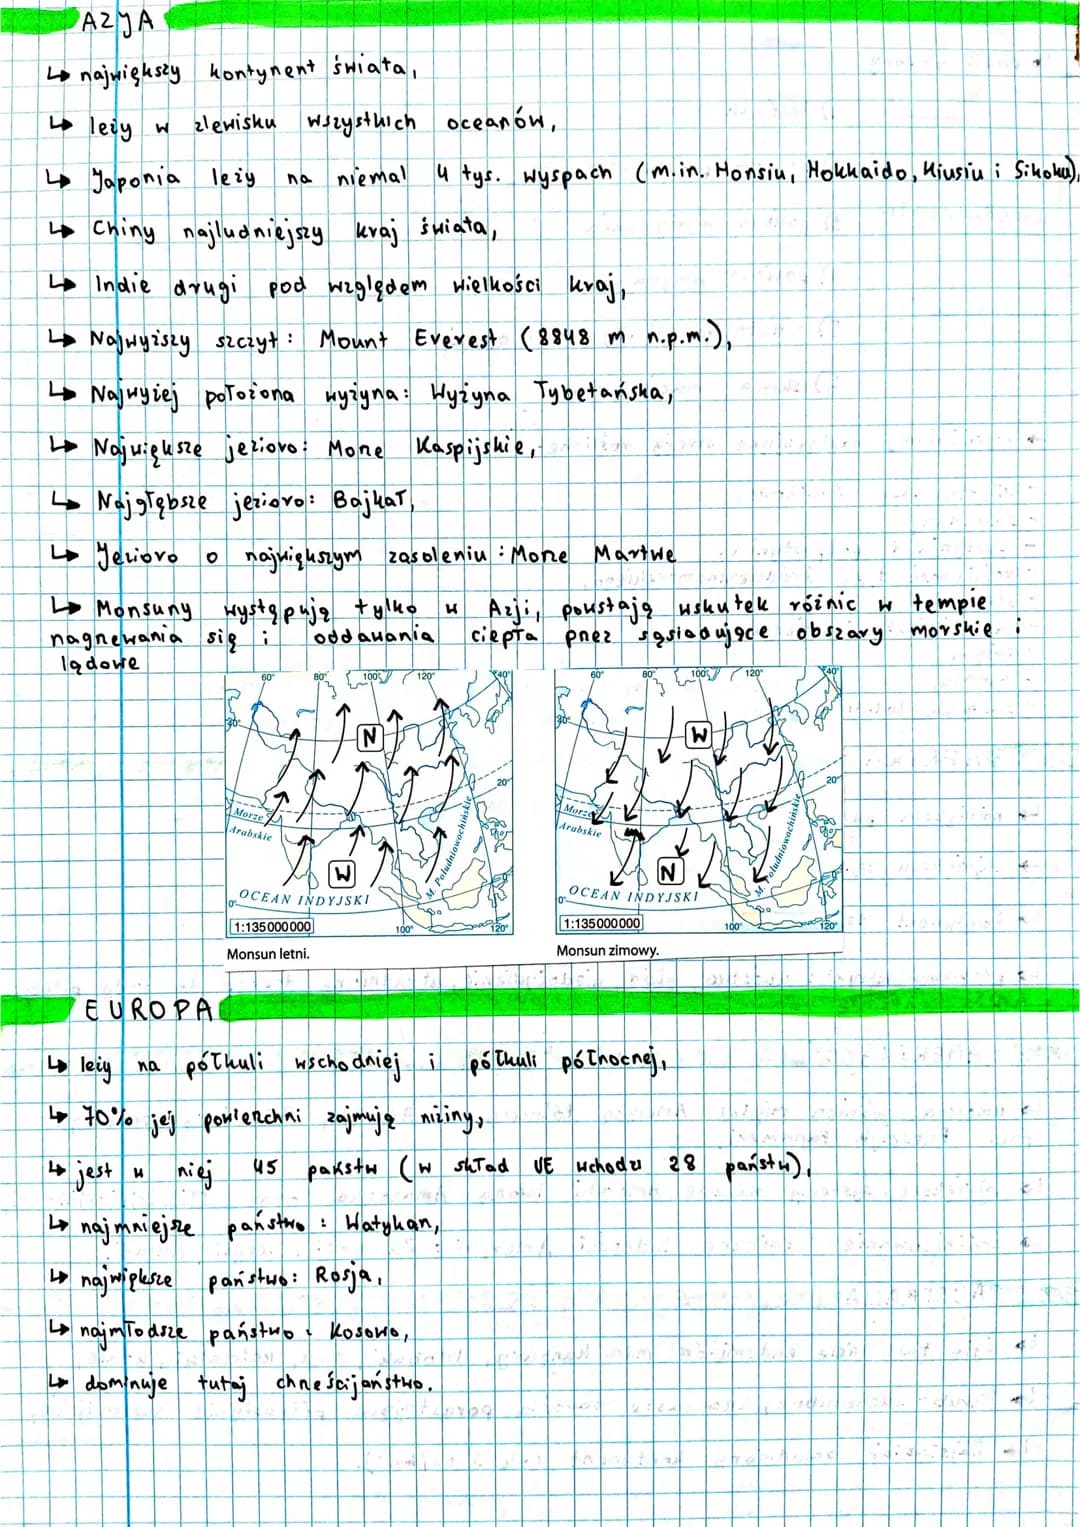 AZJA
↳ największy kontynent świata,
↳ leży w zlewisku wszystkich oceanów,
↳ Japonia leży na niemal 4 tys. wyspach (m.in. Honsiu, Hokkaido, Kiusiu i Sikoku),
↳ Chiny najludniejszy kraj świata,
↳ Indie drugi pod względem wielkości kraj,
↳ Najwyższy szczyt: Mount Everest (8848 m n.p.m.),
↳ Najwyżej położona wyżyna: Wyżyna Tybetańska,
↳ Największe jezioro: Morze Kaspijskie,
↳ Najgłębsze jezioro: Bajkał,
↳ Jezioro o największym zasoleniu: Morze Martwe
↳ Monsuny występują tylko w Azji, powstają wskutek różnic w tempie
nagrzewania się i oddawania ciepła przez sąsiadujące obszary morskie i
lądowe
60° 80° 100° 120° 40°
60° 80° 100° 120° 40°
30° N
30° W
20°
20°
Morze
Arabskie
Morze
Arabskie
M. Południowochińskie
M. Południowochińskie
W
N
OCEAN INDYJSKI
OCEAN INDYJSKI
0°
0°
1:135 000 000 100° 120°
1:135 000 000 100° 120°
Monsun letni.
Monsun zimowy.
EUROPA
↳ leży na półkuli wschodniej i półkuli północnej,
↳ 70% jej powierzchni zajmują niziny,
↳ jest w niej 45 pakstw (w skład UE wchodzi 28 państw),
↳ najmniejsze państwo: Watykan,
↳ największe państwo: Rosja,
↳ najmłodsze państwo: Kosowo,
↳ dominuje tutaj chrześcijaństwo.